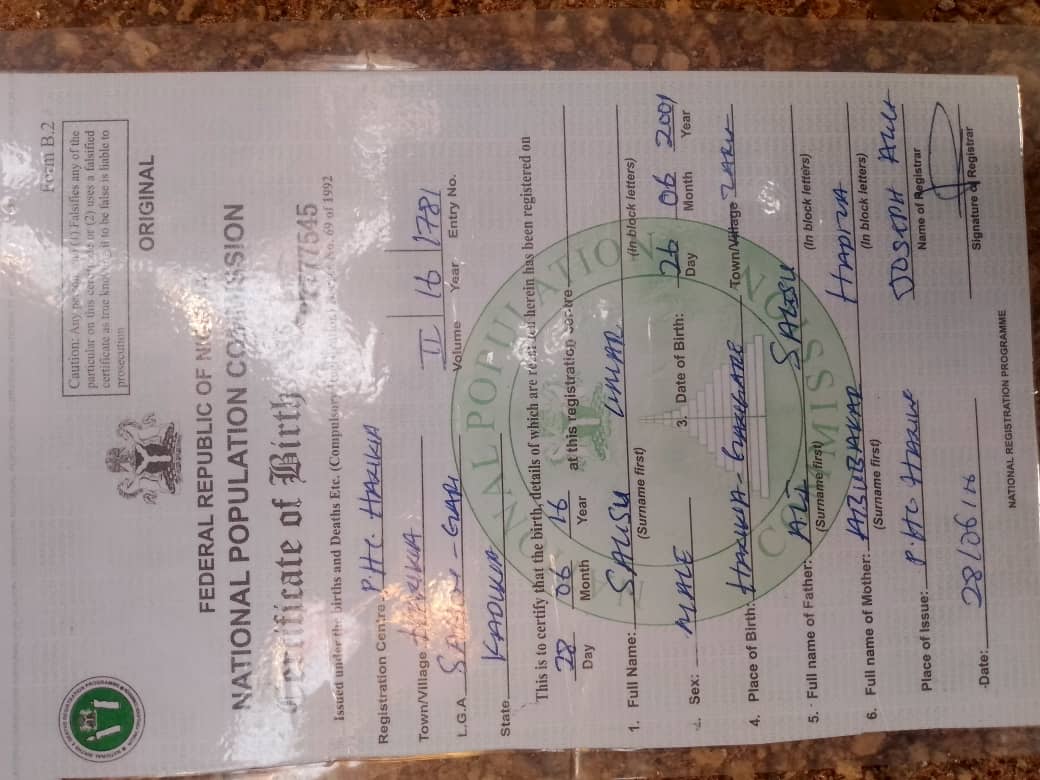 Form B.2
Caution: Any (1) Falsifies any of the
particular on this or (2) uses a falsified
certificate as true it to be false is liable to
prosecution
ORIGINAL
FEDERAL REPUBLIC OF
NATIONAL POPULATION COMMISSION
Certificate of Birth
Issued under the births and Deaths Etc. (Compulsory No. 69 of 1992
Registration Centre P.H.C. HARIKIA
Town/Village
II 16 1781
Volume Year Entry No.
L.G.A GARI
State KADUNA
This is to certify that the birth, details of which are herein has been registered on
28 06 16 at this registration centre
Day Month Year
1. Full Name: SALISU UMAR
(Surname first) (In block letters)
Sex: MALE 3. Date of Birth: 26 06 2001
Day Month Year
4. Place of Birth: Town/Village
5. Full name of Father: SALISU
(Surname first) (In block letters)
6. Full name of Mother: ABUBAKAR HADIZA
(Surname first) (In block letters)
Place of Issue: P.HC JOSEPH
Name of Registrar
Date: 28/06/16
Signature of Registrar
NATIONAL REGISTRATION PROGRAMME
NATIONAL POPULATION COMMISSION